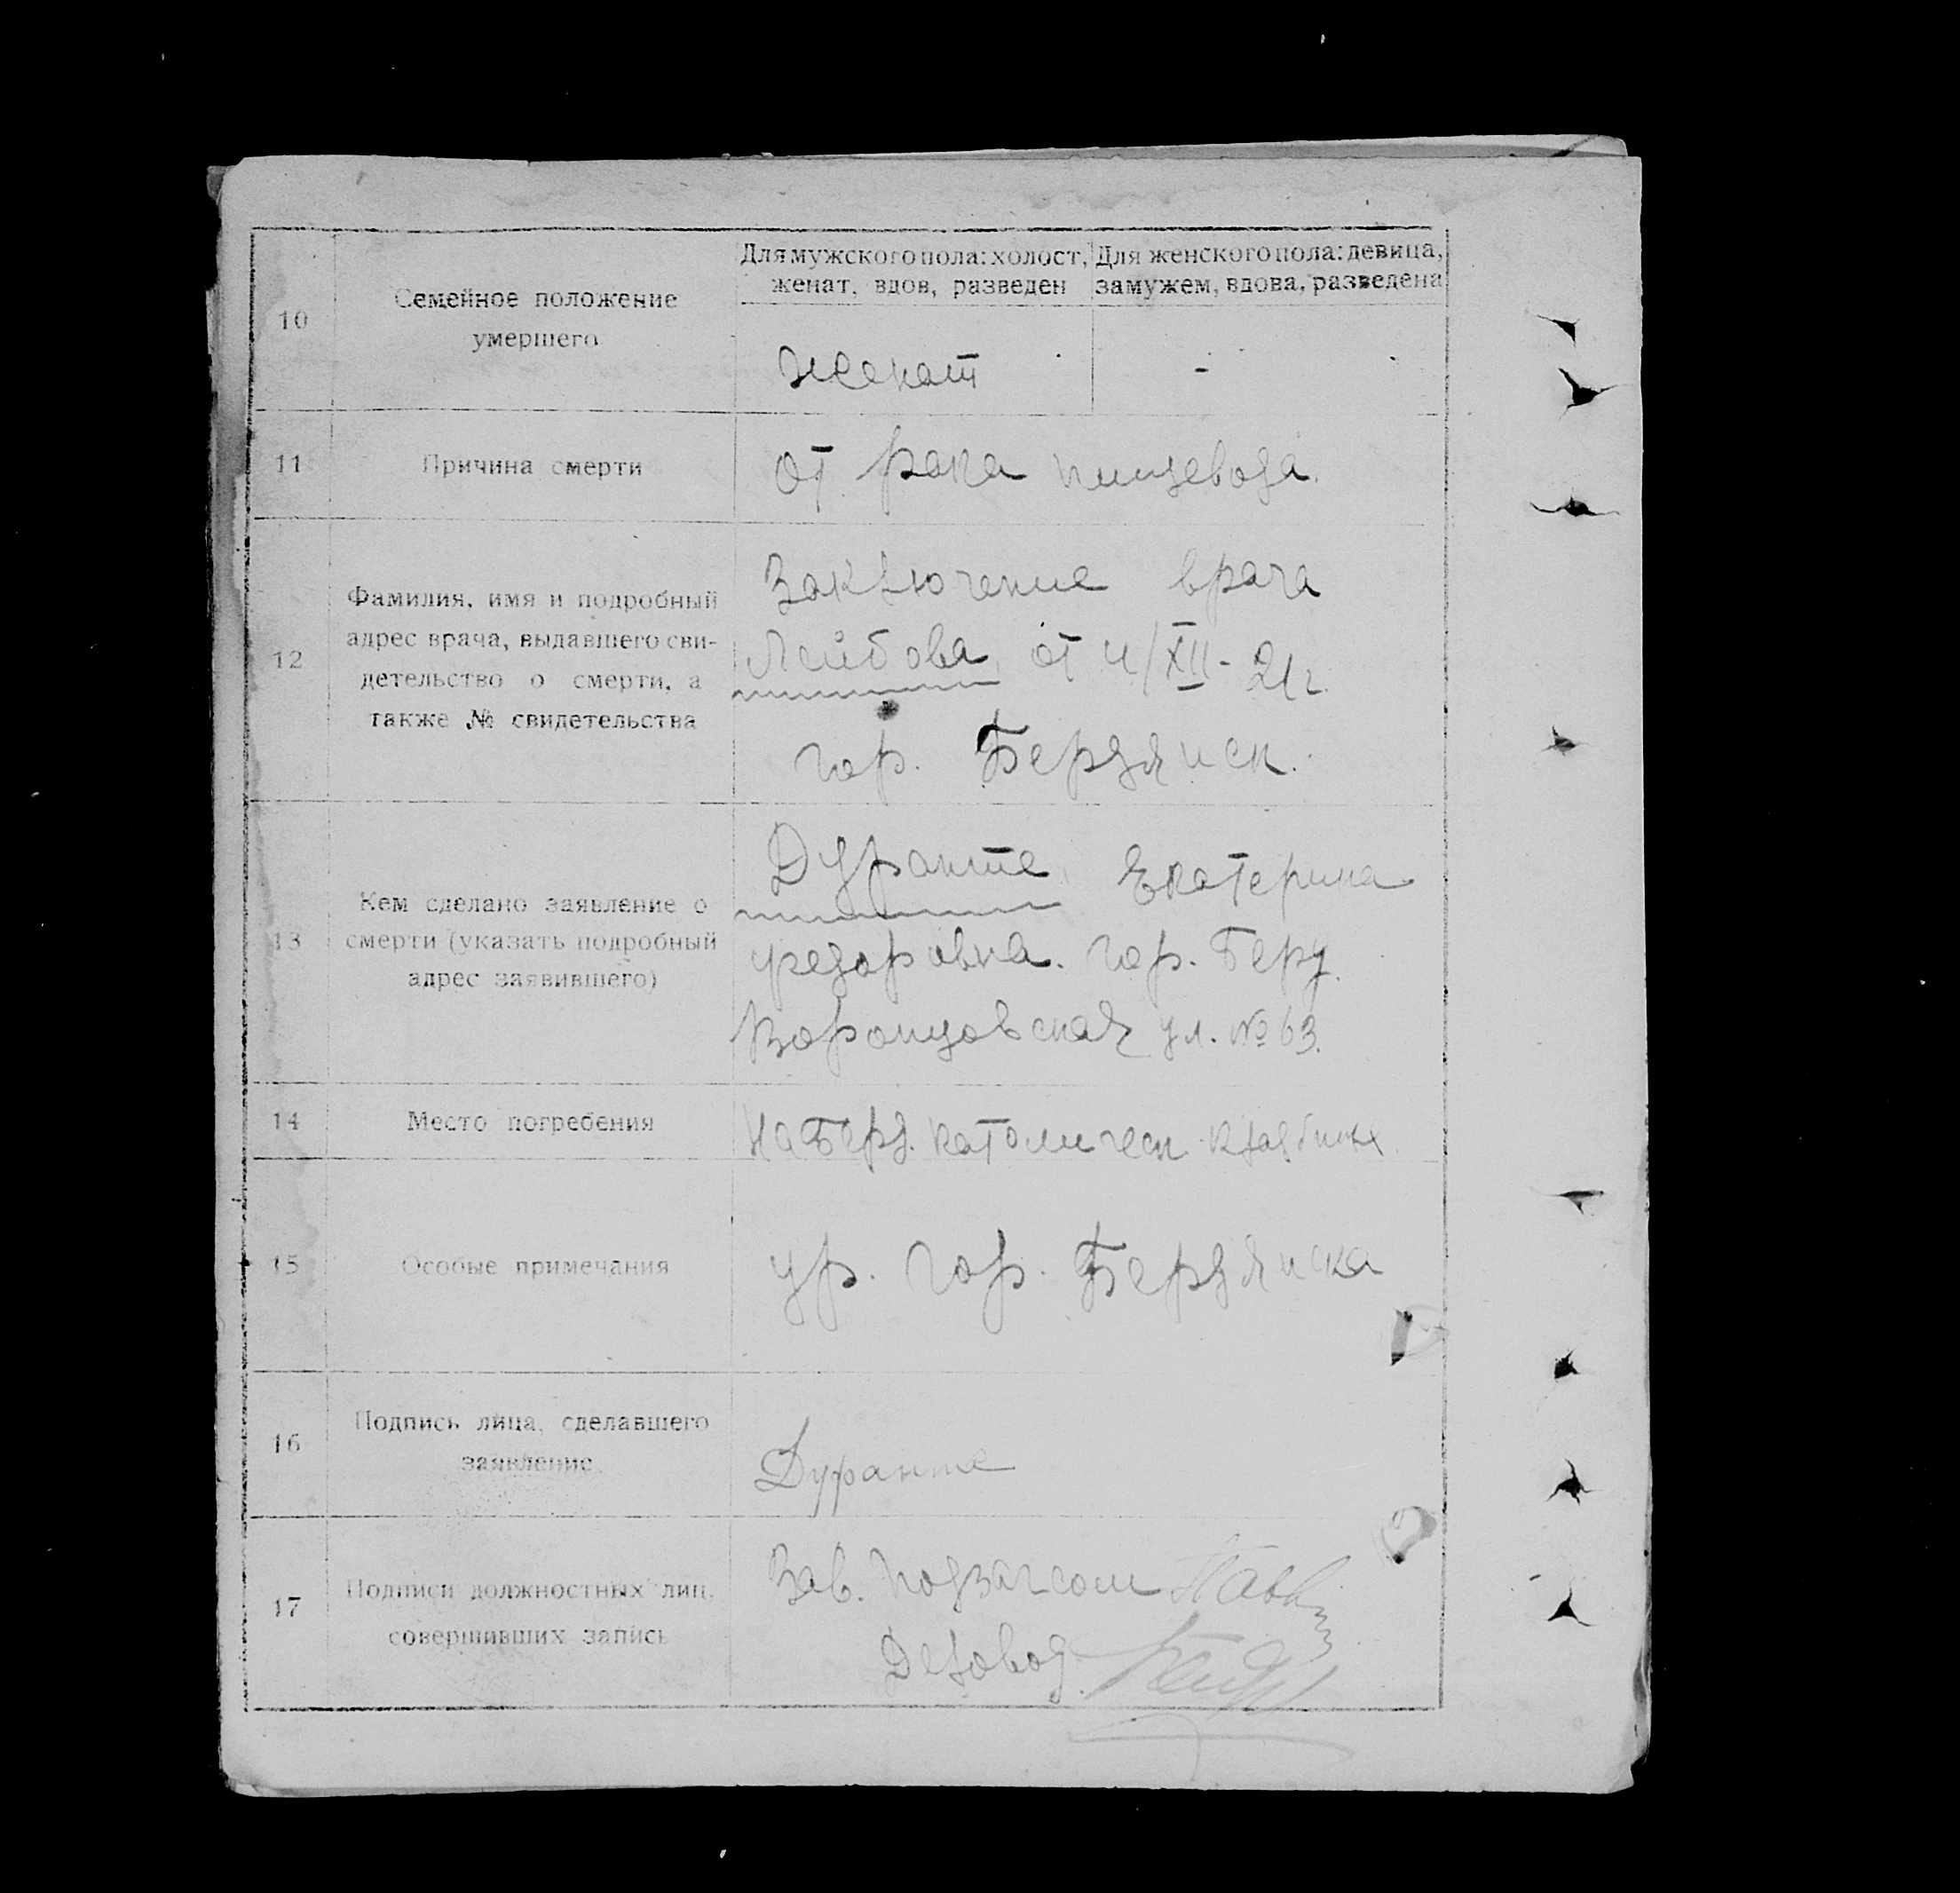 Для мужского пола: холост,
женат, вдов, разведен
Для женского пола: девица,
замужем, вдова, разведена
10
Семейное положение
умершего
Женат
-
11
Причина смерти
От рака пищевода.
12
Фамилия, имя и подробный
адрес врача, выдавшего сви-
детельство о смерти, а
также № свидетельства
Заключение врача
Лейбова от 4/XII - 21 г.
гор. Бердянск.
13
Кем сделано заявление о
смерти (указать подробный
адрес заявившего)
Дуранте Екатерина
Федоровна. гор. Берд.
Воронцовская ул. № 63.
14
Место погребения
На Берд. католическ. кладбище
15
Особые примечания
ур. гор. Бердянска
16
Подпись лица, сделавшего
заявление
Дуранте
17
Подписи должностных лиц,
совершивших запись
Зав. Подзагсом
Деловод.